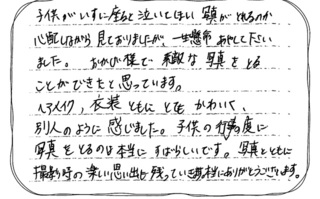 子供がいすに座ると泣いてしまい写真がとれるのか
心配しながら見ておりましたが、一生懸命あやして下さい
ました。おかげ様で素敵な写真をとる
ことができたと思っています。
ヘアメイク、衣装ともにとてもかわいく、
別人のように感じました。子供の行事の度に
写真をとるのは本当にすばらしいです。写真とともに
撮影時の楽しい思い出も残っていき本当にありがとうございます。